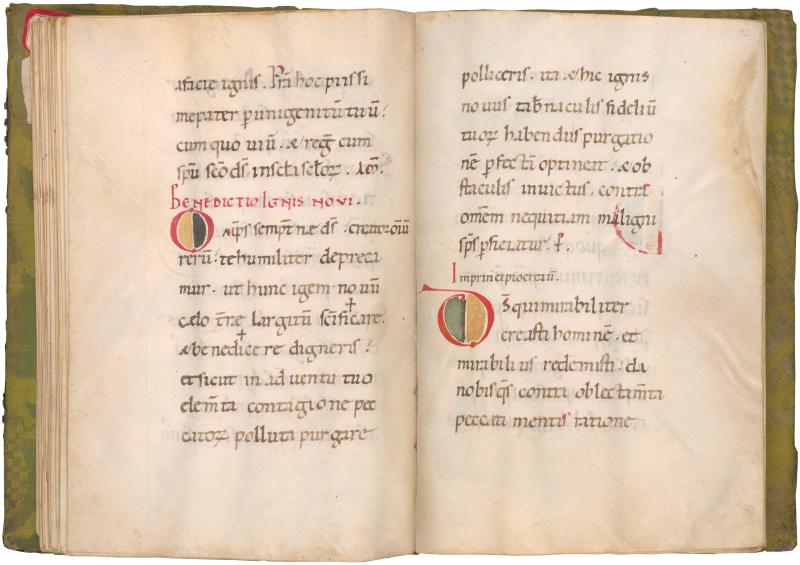 aficie ignis. Pr̄a hoc piissi
me pater ꝑ unigenitū tuū:
cum quo uiū. & reg̅ cum
sp̄u sc̄o d̄s in secl̄i secl̄oꝝ. am̄.
BENEDICTIO IGNIS NOVI.
Om̄ps semp̄t nae d̄s. creator om̄iū
rerū. te humiliter depreca
mur. ut hunc igem nouū
cælo t̄re largitū sc̄ificare.
& benedicere digneris:
et sicut in aduentu tuo
elem̄ta contagione pec
catoꝝ polluta purgare
92
polliceris. ita & hic ignis
nouus tab̄naculis fideliū
tuoꝝ habendus purgatio
nē ꝑfectā optineat. & ob
staculis inuictus. contra
omem nequitiam maligni
sp̄s ꝑficiatur. ꝑ.
Inprincipio creauī.
D̄s qui mirabiliter
creasti hominē. et
mirabilius redemisti. da
nobis qs̄ contra oblectam̄ta
peccati mentis ratione